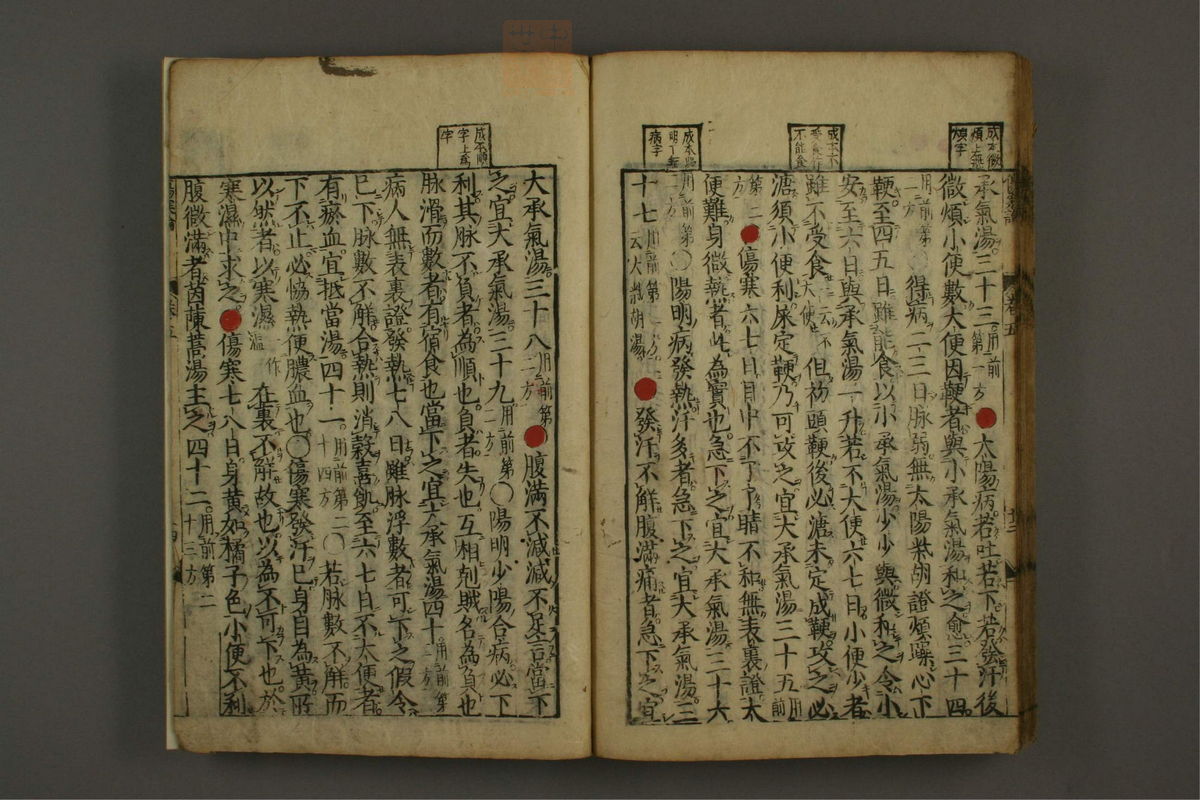 成本微
煩上無
煩字
成本不
受食作
不能食
成本陽
明下無
病字
承氣湯三十三用前第二方太陽病若吐若下若發汗後
微煩小便數大便因鞕者與小承氣湯和之愈三十四
用前第二方○得病二三日脉弱無太陽柴胡證煩躁心下
鞕至四五日雖能食以小承氣湯少少與微和之令小
安至六日與承氣湯一升若不大便六七日小便少者
雖不受食一云不大便但初頭鞕後必溏未定成鞕攻之必
溏須小便利屎定鞕乃可攻之宜大承氣湯三十五用前
第二方傷寒六七日目中不了了睛不和無表裏證大
便難身微熱者此為實也急下之宜大承氣湯三十六
用前第二方○陽明病發熱汗多者急下之宜大承氣湯三
十七用前第二方一云大柴胡湯發汗不解腹滿痛者急下之宜
傷寒論
卷五
成本順
字上有
字
大承氣湯三十八用前第二方腹滿不減減不足言當下
之宜大承氣湯三十九用前第二方○陽明少陽合病必下
利其脉不負者為順也負者失也互相剋賊名為負也
脉滑而數者有宿食也當下之宜大承氣湯四十用前第二方
病人無表裏證發熱七八日雖脉浮數者可下之假令
已下脉數不解合熱則消穀喜飢至六七日不大便者
有瘀血宜抵當湯四十一用前第二十四方○若脉數不解而
下不止必恊熱便膿血也○傷寒發汗已身目為黃所
以然者以寒濕一作溫在裏不解故也以為不可下也於
寒濕中求之傷寒七八日身黃如橘子色小便不利
腹微滿者茵蔯蒿湯主之四十二用前第二十三方
傷寒論
卷五